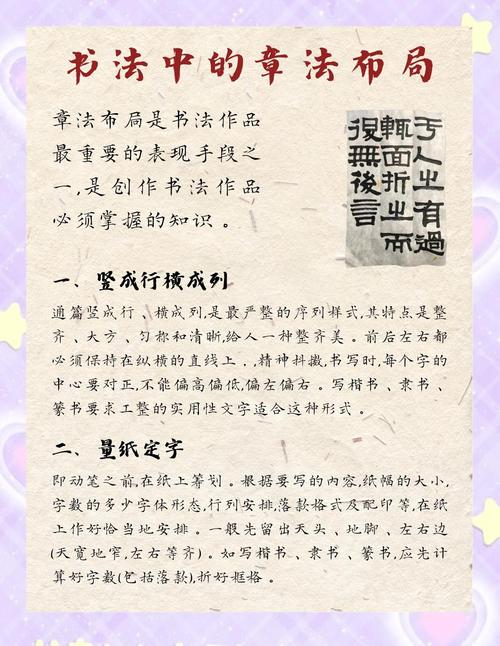 书法中的章法布局
章法布局是书法作品
最重要的表现手段之
一,是创作书法作品
必须掌握的知识。
于人之有過
輒面折之而
役無後言
一、竖成行横成列
通篇竖成行、横成列,是最严整的序列样式,其特点是整
齐、大方、匀称和清晰,给人一种整齐美。前后左右都
必须保持在纵横的直线上.,精神抖擞,书写时,每个字的
中心要对正,不能偏高偏低,偏左偏右。写楷书、隶书、
篆书要求工整的实用性文字适合这种形式。
二、量纸定字
即动笔之前,在纸上筹划。根据要写的内容,纸幅的大小,
字数的多少字体形态,行列安排,落款格式及配印等,在纸
上作好恰当地安排。一般先留出天头、地脚、左右边
(天宽地窄,左右等齐)。如写楷书、隶书、篆书,应先计
算好字数(包括落款),折好框格。